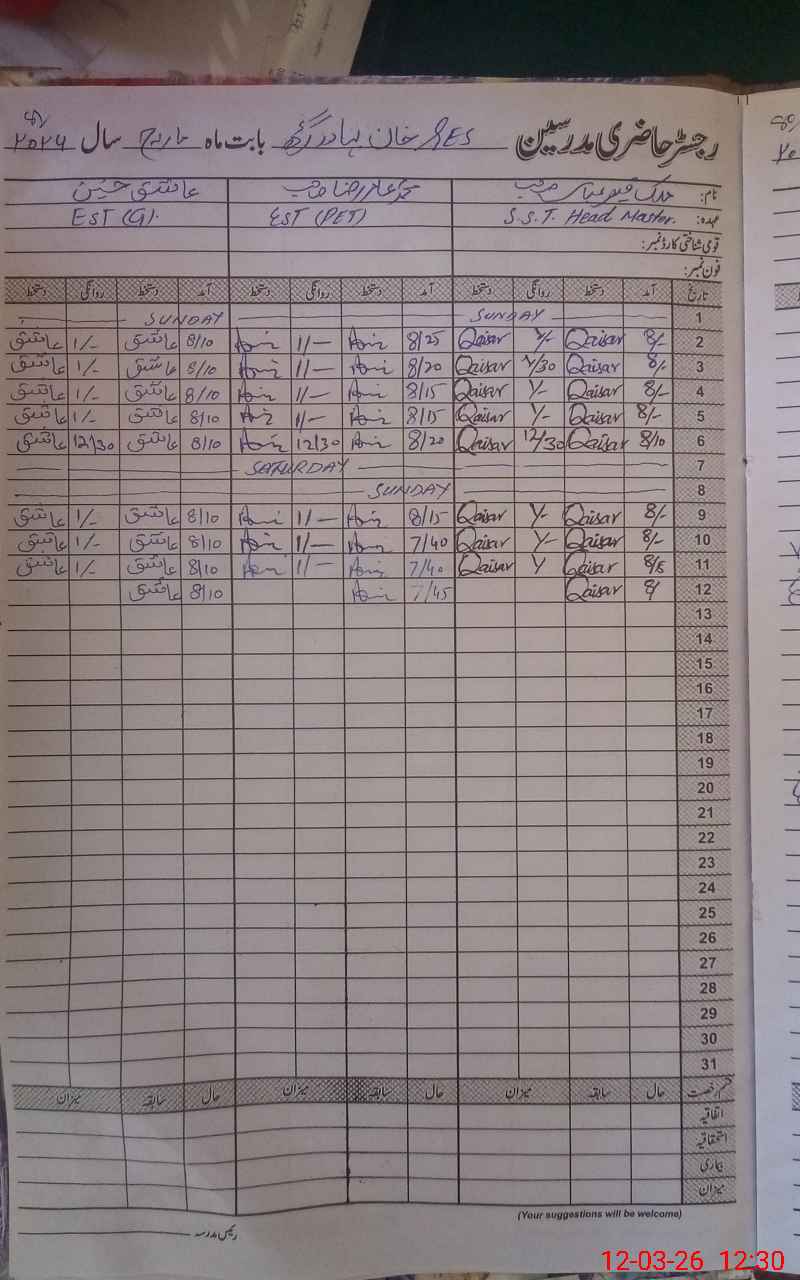 رجسٹر حاضری مدرسین GES خان بہادر گڑھ بابت ماہ مارچ سال ۲۰۲۶
نام: ملک قیصر عباس صاحب محمد عامر رضا صاحب عاشق حسین
عہدہ: S.S.T. Head Master. EST (PET) EST (G).
قومی شناختی کارڈ نمبر:
فون نمبر:
تاریخ آمد دستخط روانگی دستخط آمد دستخط روانگی دستخط آمد دستخط روانگی دستخط
1 SUNDAY SUNDAY
2 8/- Qaisar 1/- Qaisar 8/25 1/- 8/10 عاشق 1/- عاشق
3 8/- Qaisar 1/30 Qaisar 8/20 1/- 8/10 عاشق 1/- عاشق
4 8/- Qaisar 1/- Qaisar 8/15 1/- 8/10 عاشق 1/- عاشق
5 8/- Qaisar 1/- Qaisar 8/15 1/- 8/10 عاشق 1/- عاشق
6 8/10 Qaisar 12/30 Qaisar 8/20 12/30 8/10 عاشق 12/30 عاشق
7 SATURDAY
8 SUNDAY
9 8/- Qaisar 1/- Qaisar 8/15 1/- 8/10 عاشق 1/- عاشق
10 8/- Qaisar 1/- Qaisar 7/40 1/- 8/10 عاشق 1/- عاشق
11 Qaisar Qaisar 7/40 1/- 8/10 عاشق 1/- عاشق
12 8/ Qaisar 7/45 8/10 عاشق
13
14
15
16
17
18
19
20
21
22
23
24
25
26
27
28
29
30
31
قسم رخصت حال سابقہ میزان حال سابقہ میزان حال سابقہ میزان
اتفاقیہ
استحقاقیہ
بیماری
میزان
(Your suggestions will be welcome)
رئیس مدرسہ
12-03-26 12:30